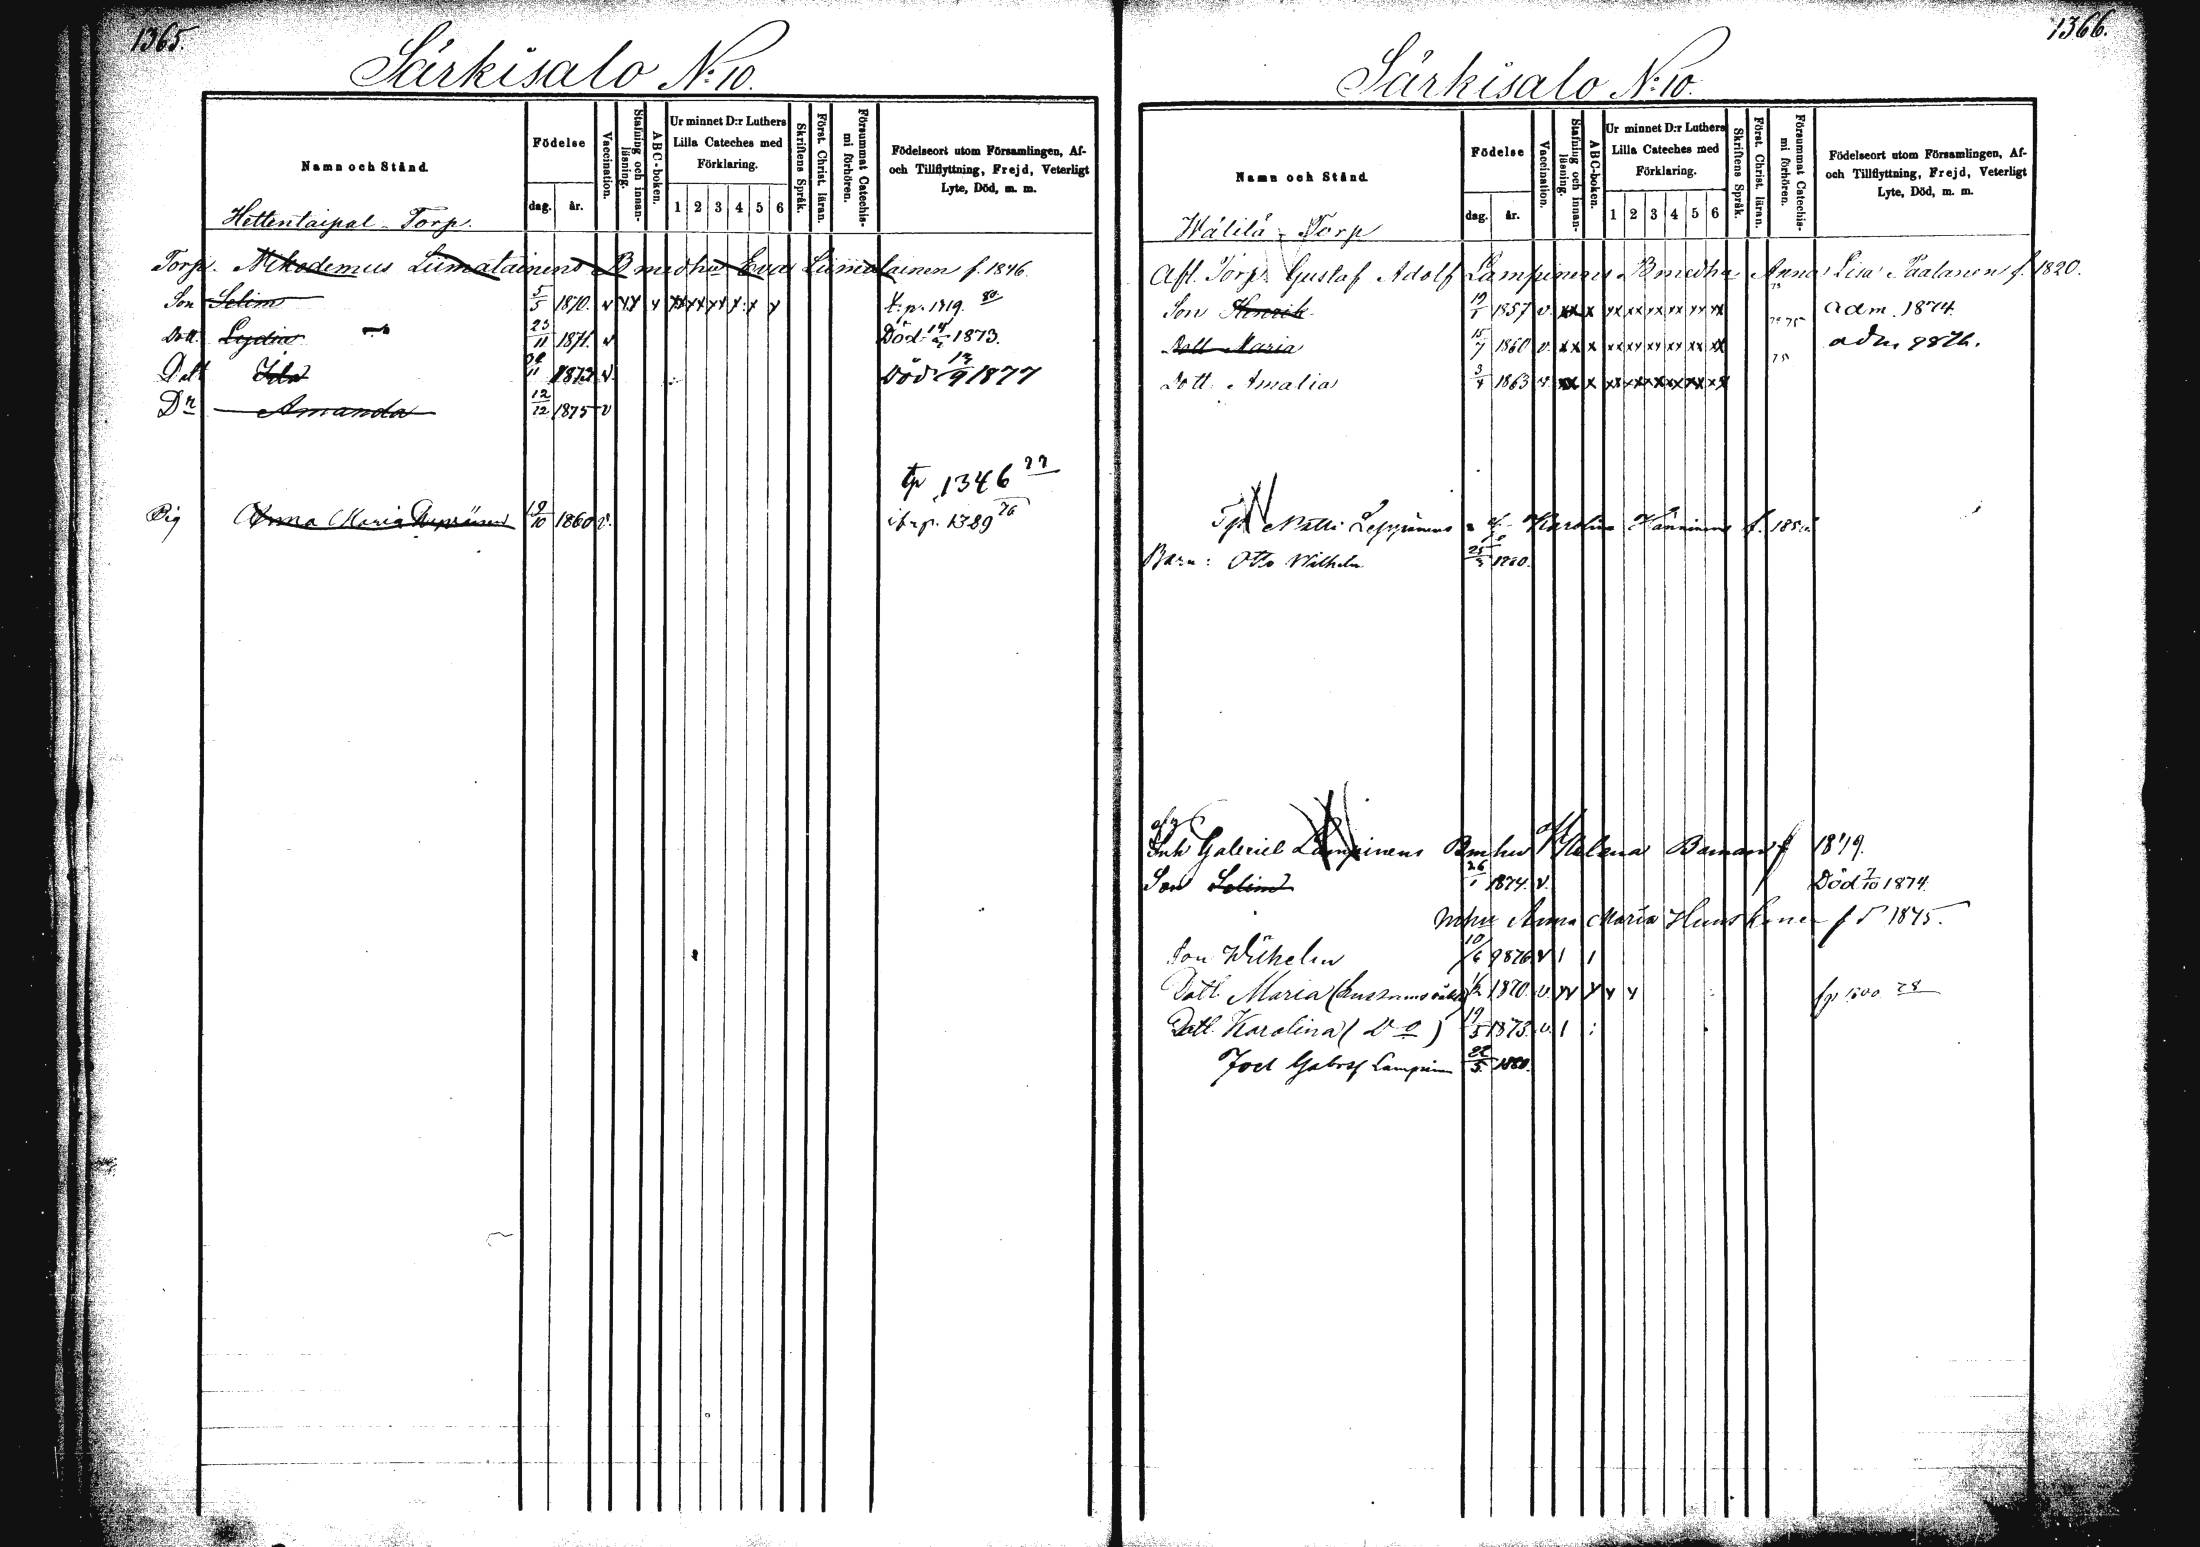 1365.
Särkisalo N:10.
Namn och Stånd.
Födelse
dag. år.
Vaccination.
Stafning och innanläsning.
ABC-boken.
Ur minnet D:r Luthers Lilla Cateches med Förklaring.
1 2 3 4 5 6
Skriftens Språk.
Först. Christ. läran.
Försummat Catechismi förhören.
Födelseort utom Församlingen, Af-
och Tillflyttning, Frejd, Veterligt
Lyte, Död, m. m.
Hettentaipal Torp.
Torp. Nikodemus Liimatainens Bmedhu Eva Liimatainen f. 1846.
Son Selim 5/5 1870. v xx x xx xx xx x x x t.p. 1719. 80
Dott. Lydia 23/11 1871. v Död 14/4 1873.
Dott Ida 30/11 1873 v. Död 13/9 1877
Dr Amanda 12/12 1875 v
tp 1346 77
Pig Anna Maria 19/10 1860 v. p. 1389 76
1366.
Särkisalo N:10.
Namn och Stånd.
Födelse
dag. år.
Vaccination.
Stafning och innanläsning.
ABC-boken.
Ur minnet D:r Luthers Lilla Cateches med Förklaring.
1 2 3 4 5 6
Skriftens Språk.
Först. Christ. läran.
Försummat Catechismi förhören.
Födelseort utom Församlingen, Af-
och Tillflyttning, Frejd, Veterligt
Lyte, Död, m. m.
Wälilä Torp
Afl. Torp. Gustaf Adolf Lampinens Bmedha Anna Lisa Paalanen f. 1820.
Son Henrik 19/1 1857 v. xx x xx xx xx xx xx xx adm. 1874.
Dott Maria 15/7 1860 v. xx x xx xx xx xx xx xx 75 adm 1876.
Dott. Amalia 3/4 1863 v. xx x xx xx xx xx xx xx 75
Tp. Matti Leppänens Karolina Hänninen f.
Barn: Otto Wilhelm 25/3 1880.
Inh Gabriel Lampinens Bmhu Helena Baman f 1849.
Son Selim 26/1 1874. v. Död 7/10 1874.
mhu Anna Maria Huuskonen f 1845.
Son Wilhelm 10/6 1876 v 1 1
Dott. Maria 1870. v. xx x x x 78
Dott. Karolina (Do) 19/5 1873. v. 1
Joel Gabr Lampinen 22/5 1880.